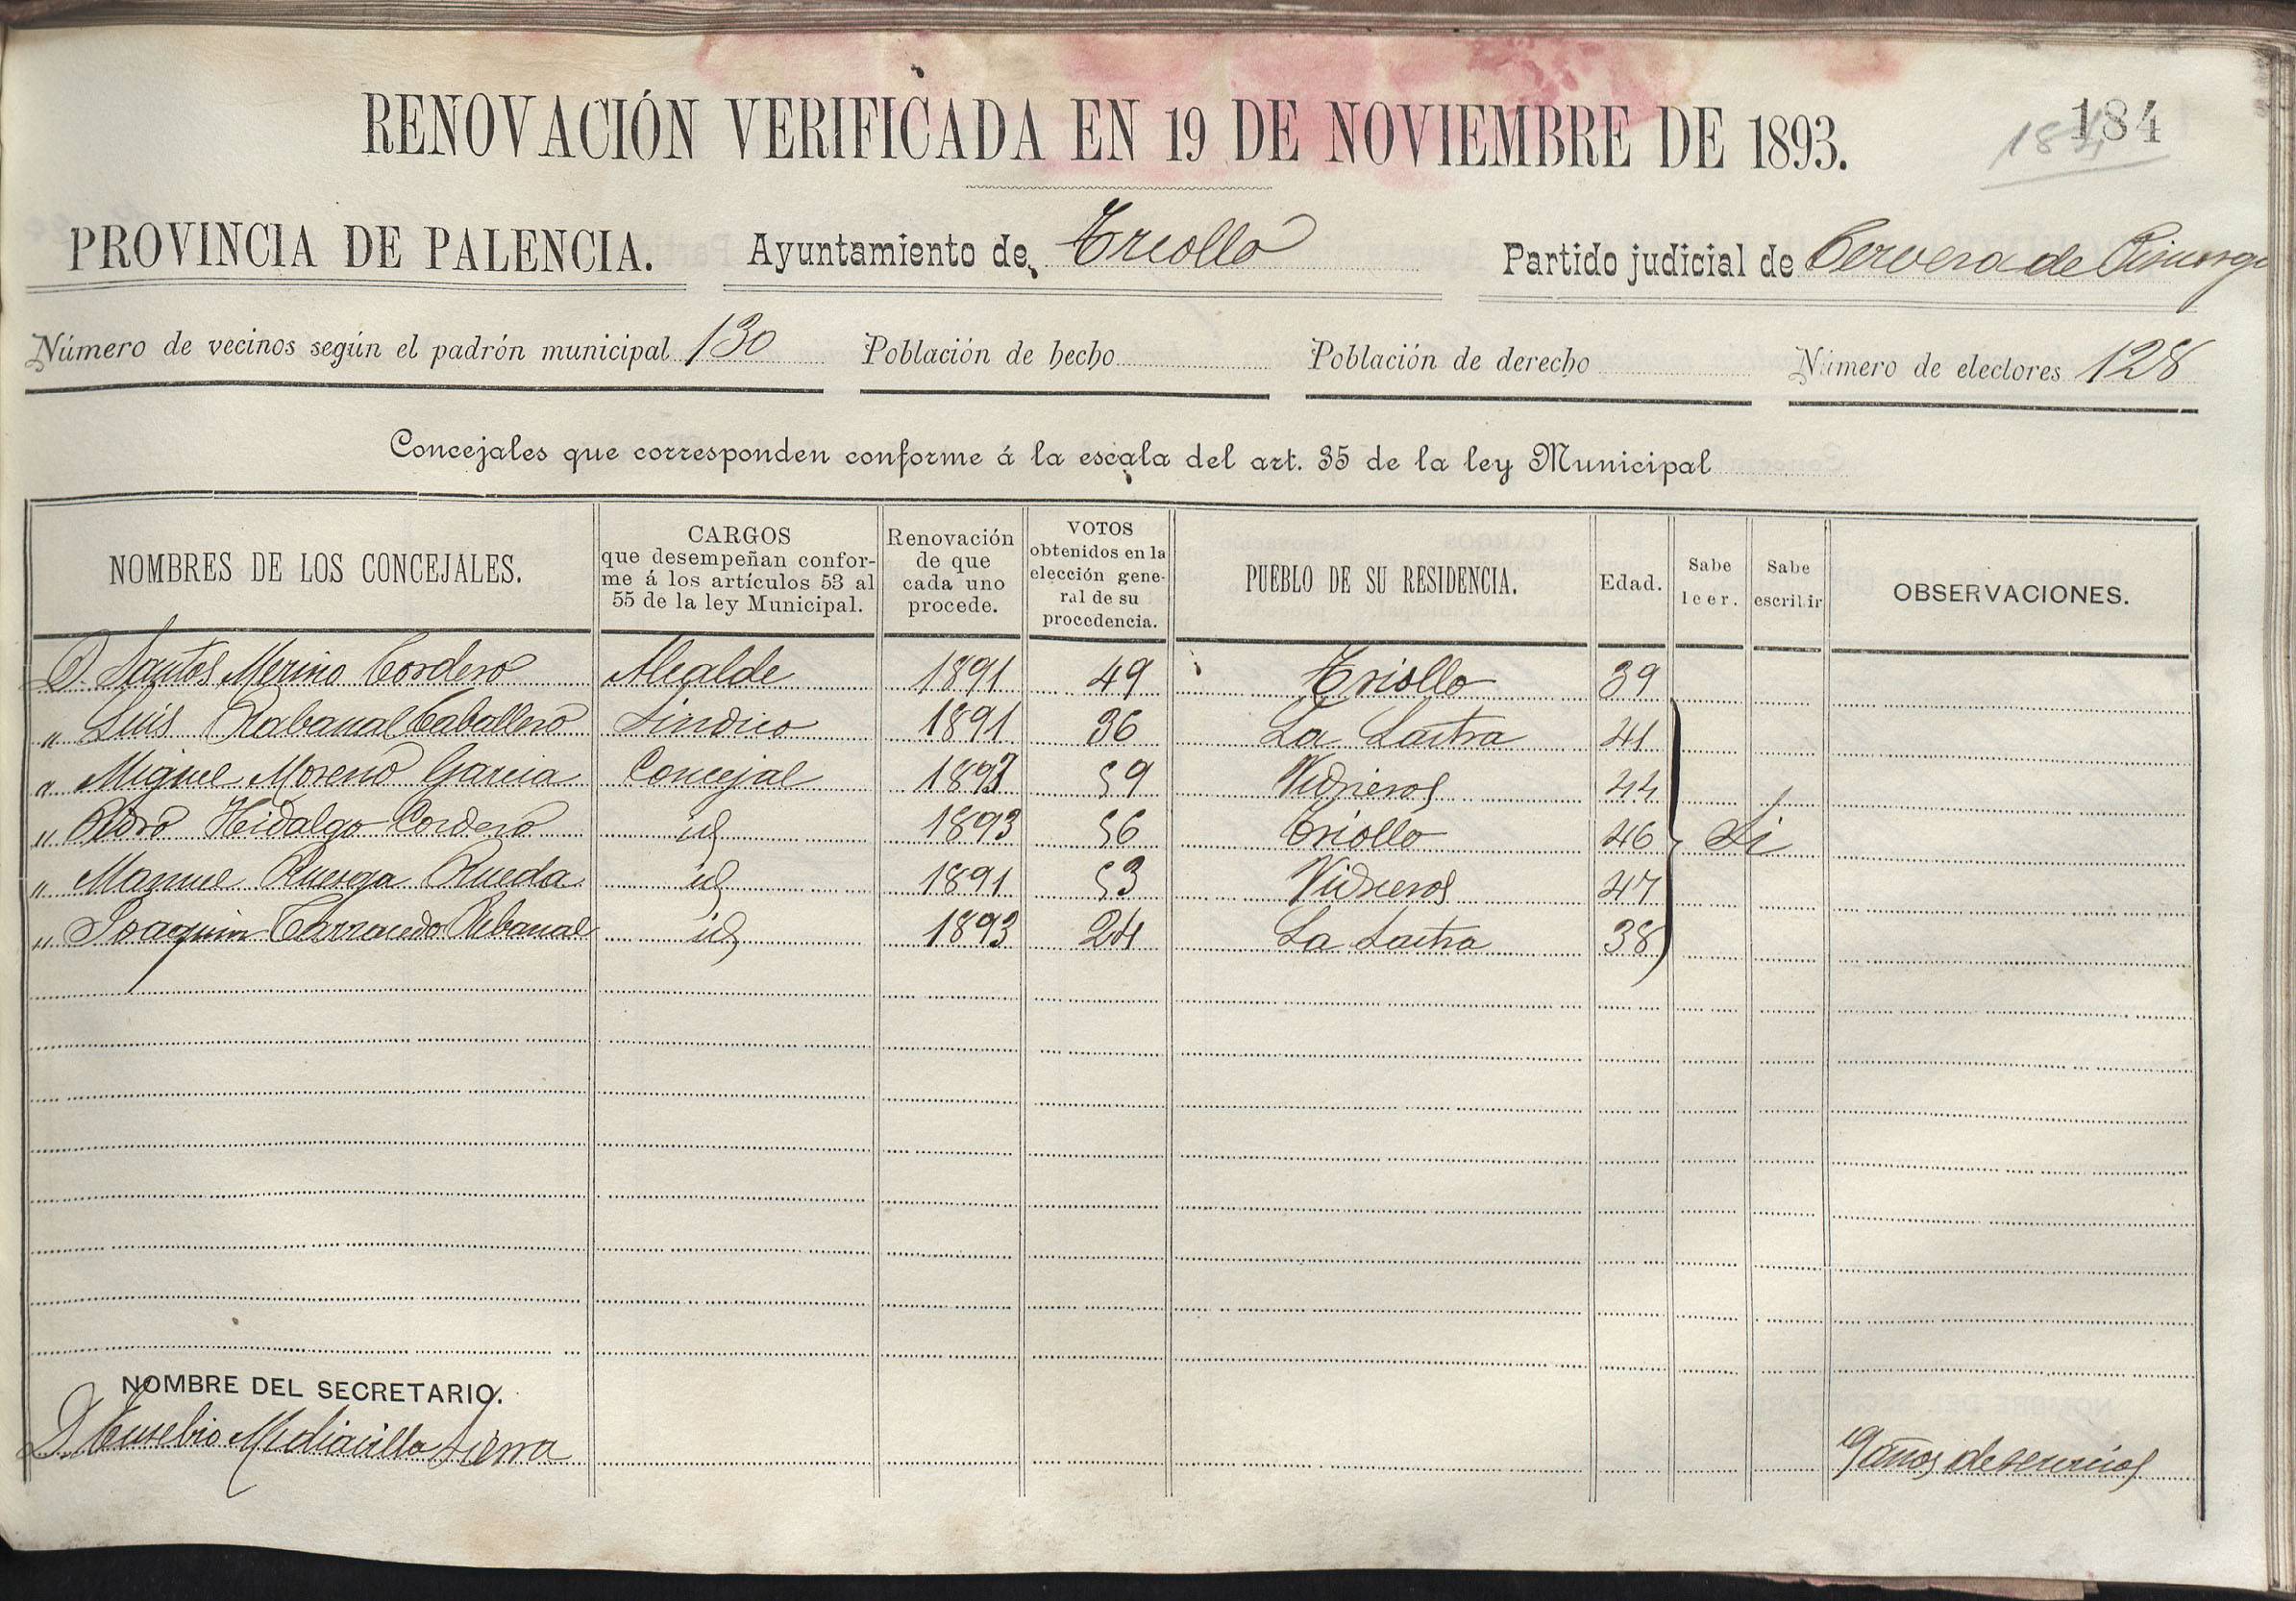 RENOVACIÓN VERIFICADA EN 19 DE NOVIEMBRE DE 1893.
184
184
PROVINCIA DE PALENCIA. Ayuntamiento de Triollo Partido judicial de Cervera de Pisuerga
Número de vecinos según el padrón municipal 130 Población de hecho Población de derecho Número de electores 128
Concejales que corresponden conforme á la escala del art. 35 de la ley Municipal
NOMBRES DE LOS CONCEJALES. CARGOS que desempeñan conforme á los artículos 53 al 55 de la ley Municipal. Renovación de que cada uno procede. VOTOS obtenidos en la elección general de su procedencia. PUEBLO DE SU RESIDENCIA. Edad. Sabe leer. Sabe escribir OBSERVACIONES.
D. Santos Merino Cordero Alcalde 1891 49 Triollo 39
" Luis Rabanal Caballero Síndico 1891 36 La Lastra 41
" Miguel Moreno Garcia Concejal 1893 59 Vidrieros 44
" Pedro Hidalgo Cordero id 1893 56 Triollo 46 Si
" Manuel Ruesga Rueda id 1891 53 Vidrieros 47
" Joaquin Carracedo Rebanal id 1893 24 La Lastra 38
NOMBRE DEL SECRETARIO.
D. Eusebio Mediavilla Sierra 9 años de servicios